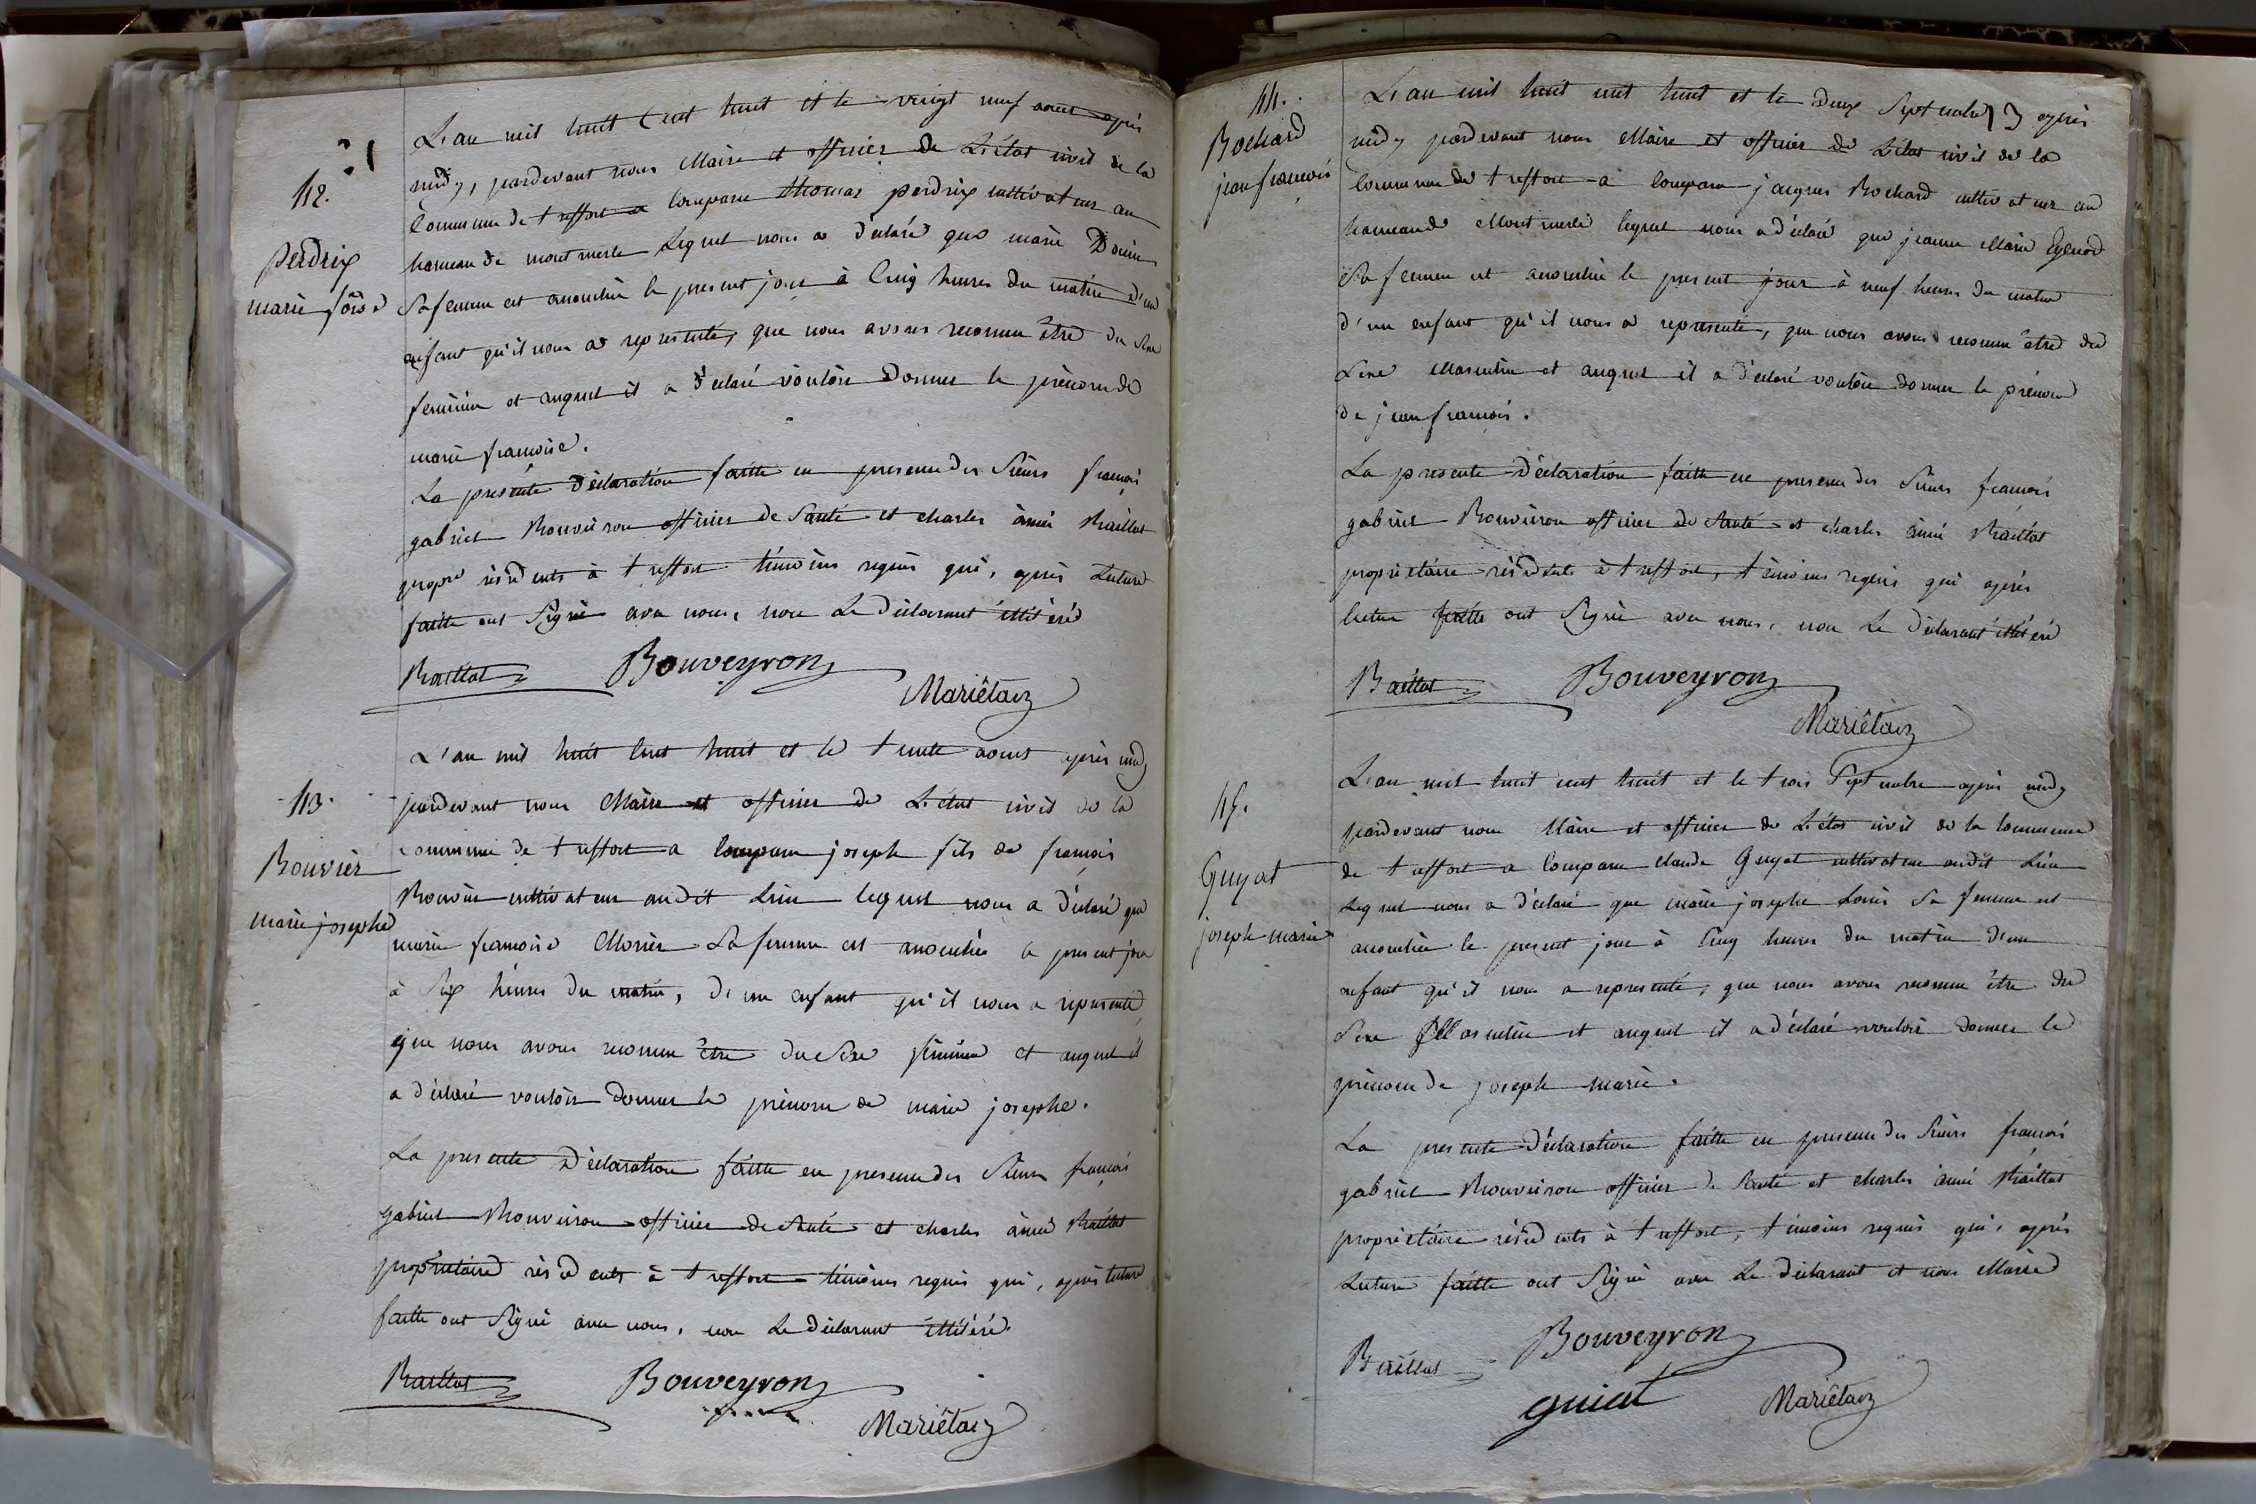 42.
Perdrix
marie fçoise
L'an mil huit Cent huit et le vingt neuf aout après
midy, pardevant nous Maire et officier de L'état civil de la
Commune de treffort a Comparu thomas perdrix cultivateur au
hameau de montmerle Lequel nous a déclaré que marie
Sa femme est accouchée le present jour à Cinq heures du matin d'un
enfant qu'il nous a representé, que nous avons reconnu être du Sexe
feminin et auquel il a déclaré vouloir Donner le prénom de
marie francoise.
La presente Déclaration faitte en presence des Sieurs francois
gabriel Bouveiron officier de Santé et charles aimé Raillat
propre résidents à treffort témoins requis qui, après Lecture
faitte ont Signé avec nous, non Le Déclarant illitéré
Raillat Bouveyron
Mariétan
43.
Bouvier
marie josephe
L'an mil huit Cent huit et le trente aout après midy
pardevant nous Maire et officier de L'état civil de la
commune de treffort a Comparu joseph fils de francois
Bouvier cultivateur audit Lieu lequel nous a déclaré que
marie francoise Morier Sa femme est accouchée le present jour
à Six heures du matin, d'un enfant qu'il nous a representé,
que nous avons reconnu être du Sexe féminin et auquel il
a déclaré vouloir Donner le prénom de marie josephe.
La presente Déclaration faitte en presence des Sieurs francois
gabriel Bouveiron officier de Santé et charles aimé Raillat
propriétaire résidents à treffort témoins requis qui, après lecture
faitte ont Signé avec nous, non Le Déclarant illitéré.
Raillat Bouveyron
Mariétan
44.
Bochard
jean francois
L'an mil huit cent huit et le Deux Septembre après
midy pardevant nous Maire et officier de L'état civil de la
Commune de treffort a Comparu jacques Bochard cultivateur au
hameau de Montmerle lequel nous a déclaré que jeanne Marie
Sa femme est accouchée le present jour à neuf heures du matin
d'un enfant qu'il nous a representé, que nous avons reconnu être du
Sexe Masculin et auquel il a déclaré vouloir donner le prénom
de jean francois.
La presente Déclaration faitte en presence des Sieurs francois
gabriel Bouveiron officier de Santé et charles aimé Raillat
propriétaire résidents à treffort, témoins requis qui après
lecture faitte ont Signé avec nous, non Le Déclarant illitéré
Raillat Bouveyron
Mariétan
45.
Guyat
joseph marie
L'an mil huit cent huit et le trois Septembre après midy
pardevant nous Maire et officier de L'état civil de la Commune
de treffort a Comparu claude Guyat cultivateur audit Lieu
Lequel nous a déclaré que marie josephe Sa femme est
accouchée le present jour à Cinq heures du matin d'un
enfant qu'il nous a representé, que nous avons reconnu être du
Sexe Masculin et auquel il a déclaré vouloir donner le
prénom de joseph marie.
La presente Déclaration faitte en presence des Sieurs francois
gabriel Bouveiron officier de Santé et charles aimé Raillat
propriétaire résidents à treffort, témoins requis qui, après
Lecture faitte ont Signé avec Le Déclarant et nous Maire
Raillat Bouveyron
guiat Mariétan